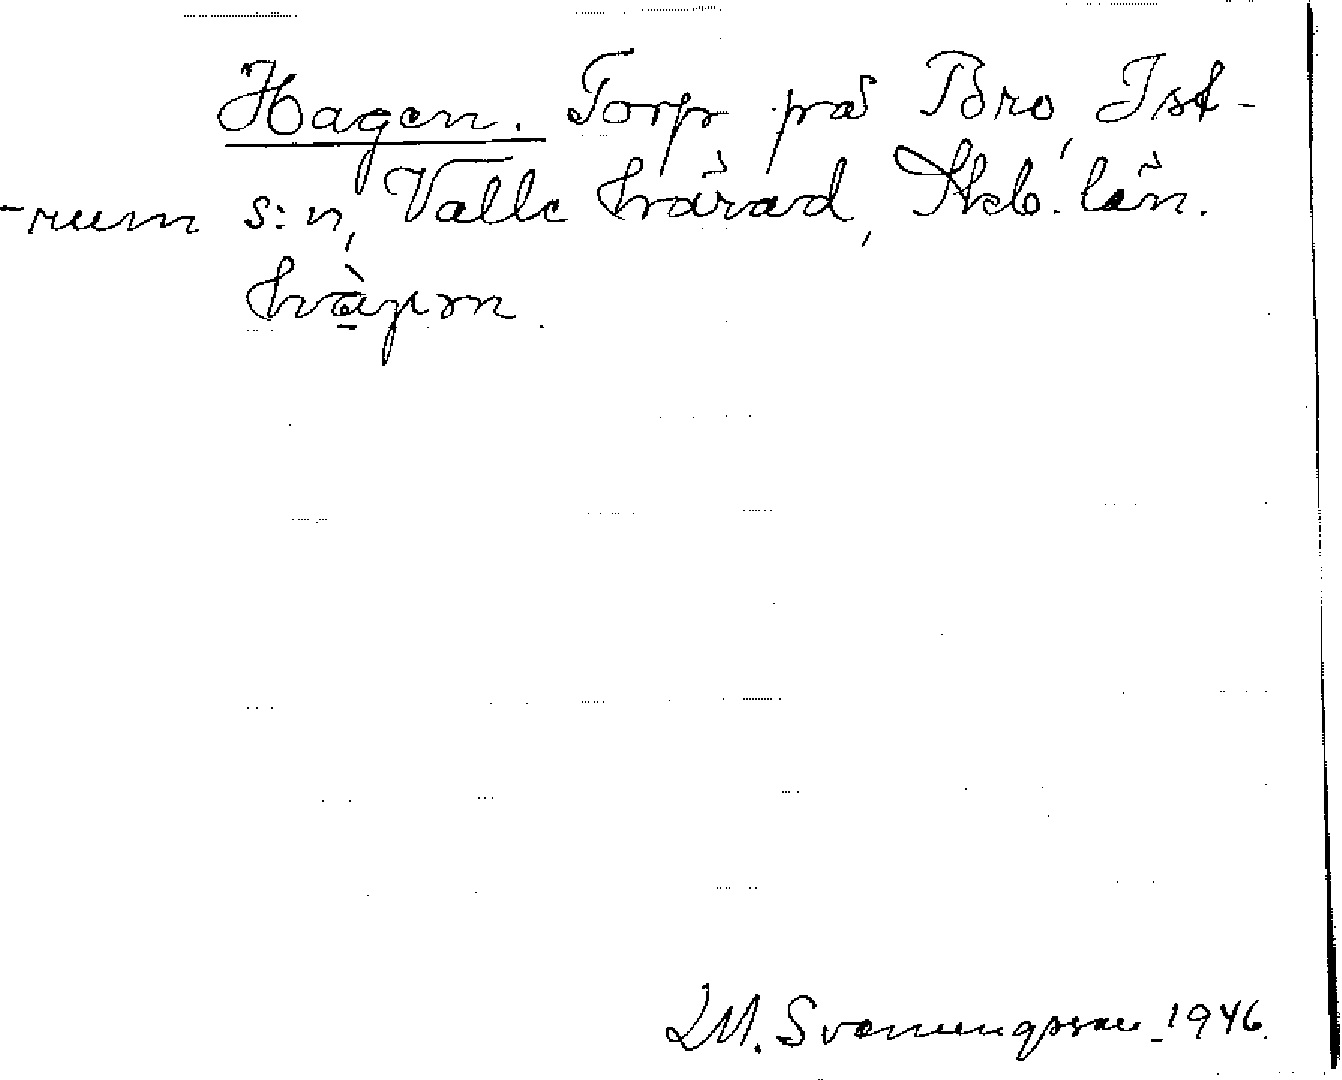 Hagen. Torp på Bro, Ist-
-rum s:n, Valle härad, Skb. län.
M. Svenungsson 1946.